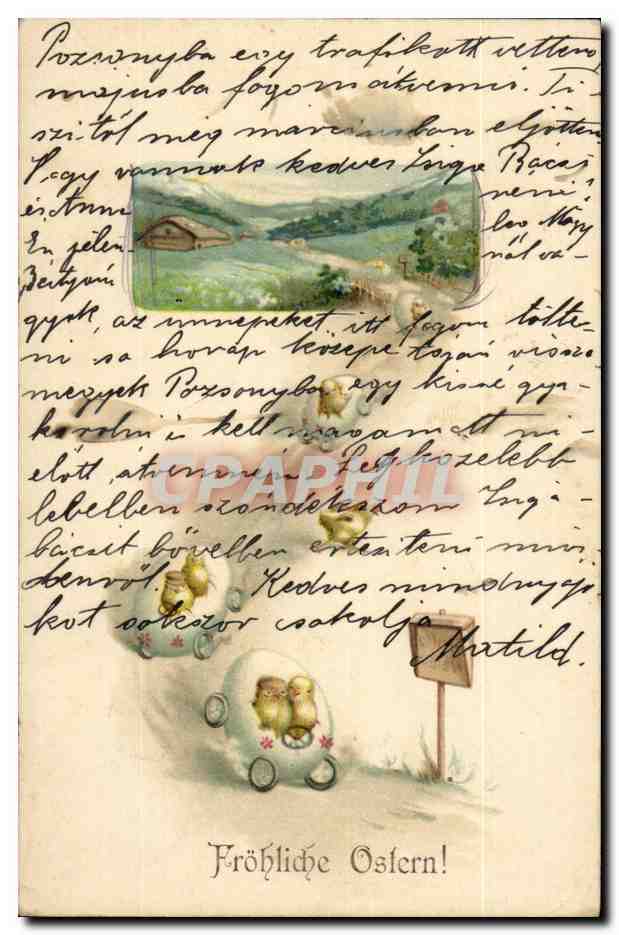 Pozsonyba egy trafikott vettem
májusba fogom átvenni. Ti-
szitől meg márciusban eljöttem
Hogy vannak kedves Zsiga Bácsi
és Anna néni?
Én jelen- leg Magy
Bértyéni nál va-
gyok, az ünnepeket itt fogom tölte-
ni s a honap közepe táján vissza
megyek Pozsonyba egy kissé gya-
korolni is kell magamat mi-
előtt átvenném. Legközelebb
lebelben szándékszom Zsiga-
bácsit bővebben értesíteni min-
denről. Kedves mindnyájo-
kot sokszor csókolja
Matild.
CPAPHIL
Fröhliche Ostern!